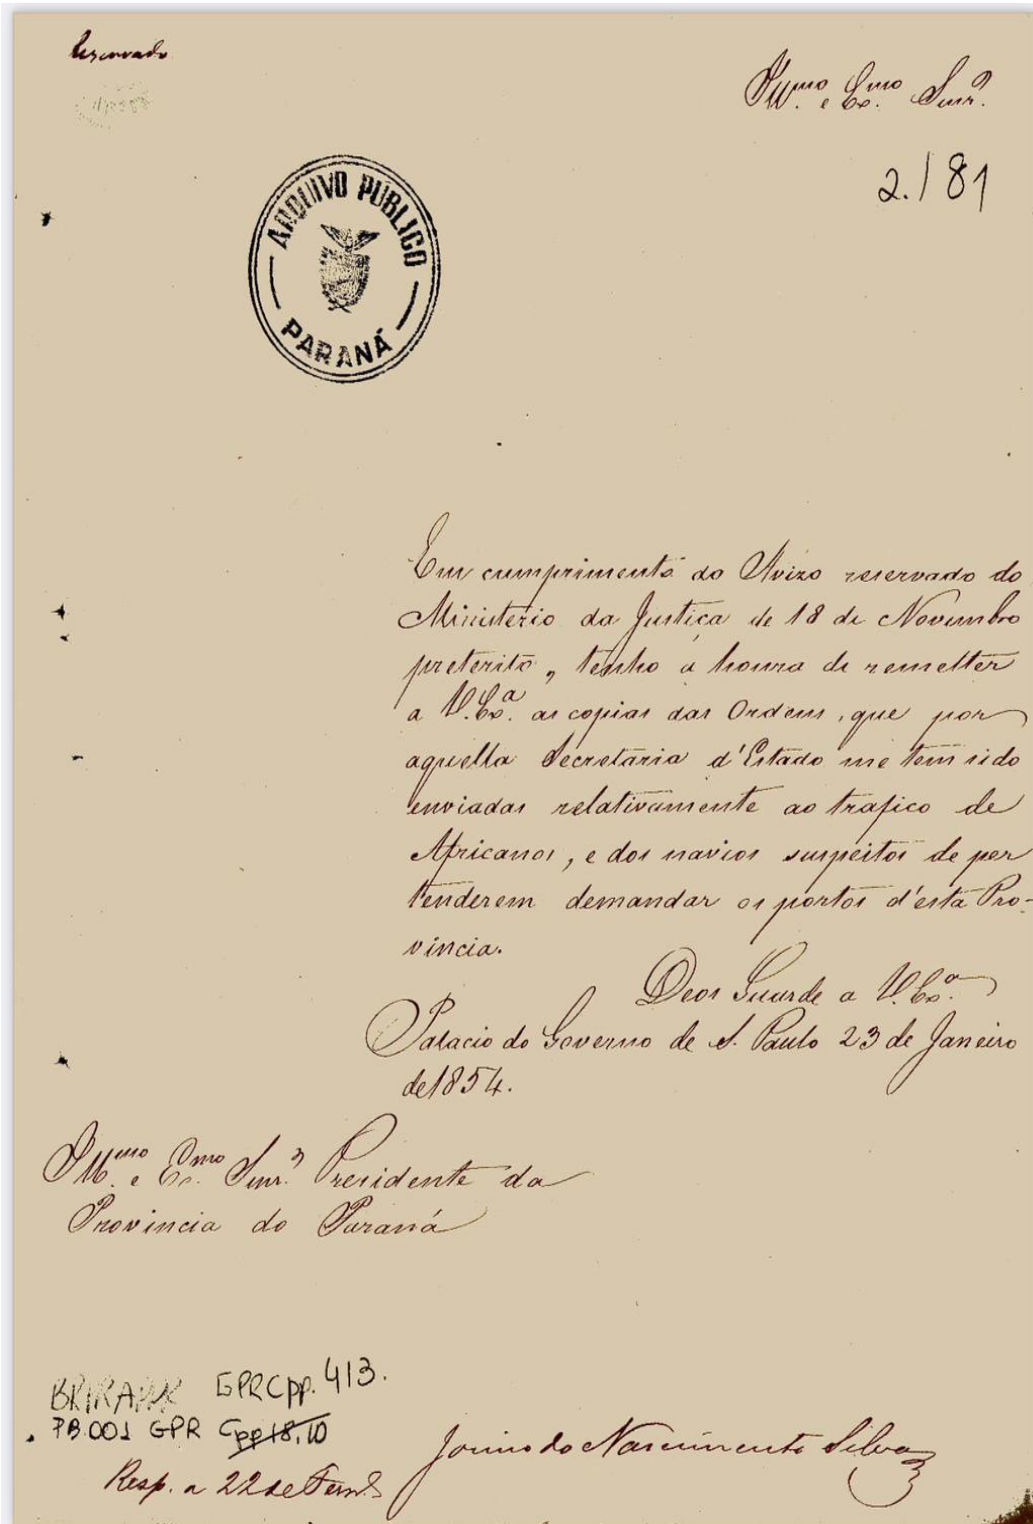 Reservado
Ill.mo e Ex.mo Snr.
2.181
ARQUIVO PÚBLICO
PARANÁ
Em cumprimento do Avizo reservado do
Ministerio da Justiça de 18 de Novembro
preterito, tenho a honra de remetter
a V.Ex.a as copias das Ordens, que por
aquella Secretaria d'Estado me tem sido
enviadas relativamente ao trafico de
Africanos, e dos navios suspeitos de per
tenderem demandar os portos d'esta Pro-
vincia.
Deos Guarde a V.Ex.a
Palacio do Governo de S. Paulo 23 de Janeiro
de 1854.
Ill.mo e Ex.mo Snr. Presidente da
Provincia do Paraná
GPRCpp.413.
PB.001 GPR Cpp18.10
Resp. a 22 de
Josino do Nascimento Silva